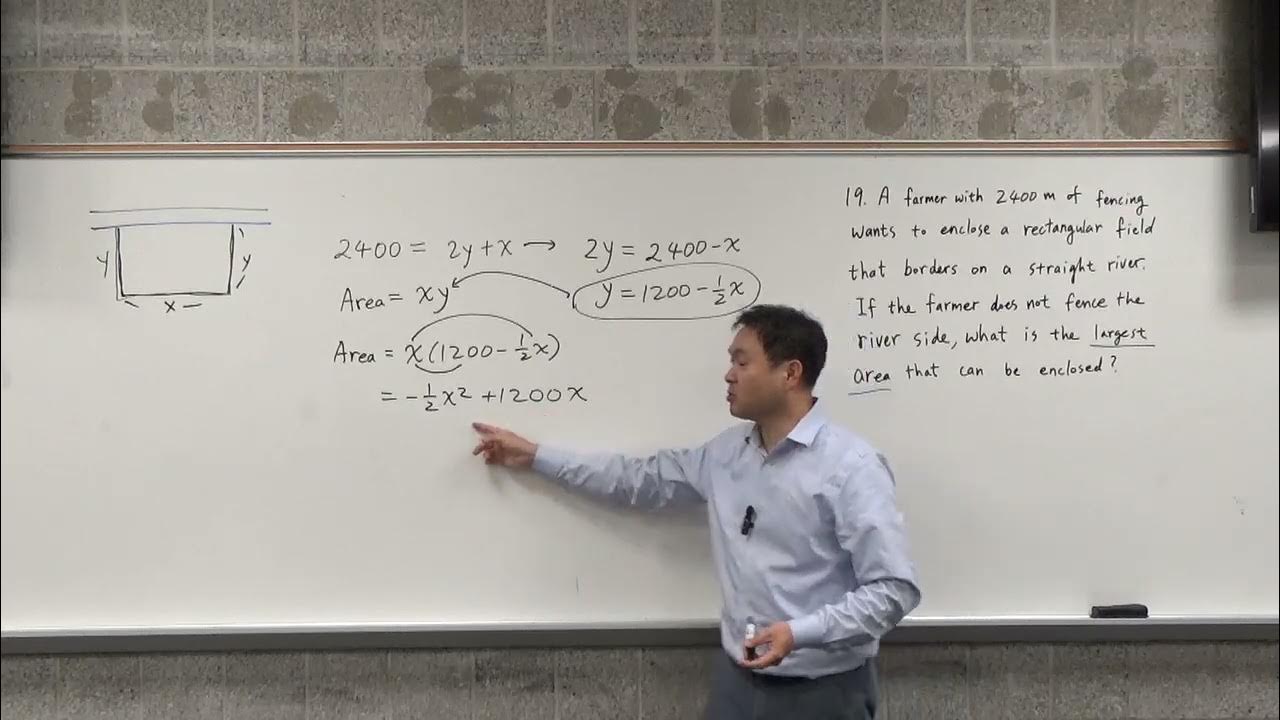 2400 = 2y + x → 2y = 2400 - x
Area = xy
y = 1200 - 1/2 x
Area = x(1200 - 1/2 x)
= - 1/2 x² + 1200x
y
y
x
19. A farmer with 2400 m of fencing
wants to enclose a rectangular field
that borders on a straight river.
If the farmer does not fence the
river side, what is the largest
area that can be enclosed?